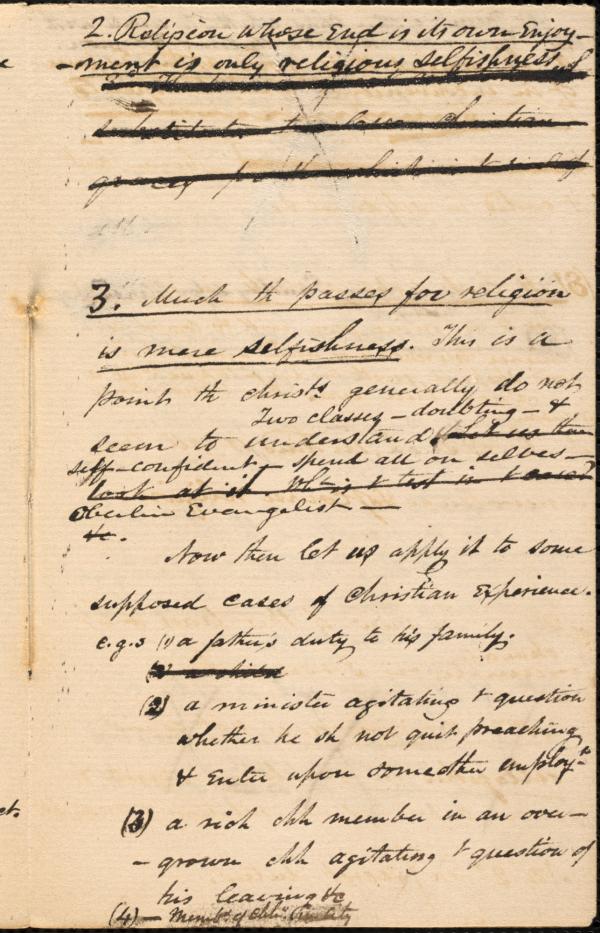 2. Religion whose End is its own Enjoy-
-ment is only religious selfishness.
3. Much th passes for religion
is mere selfishness. This is a
point th christs generally do not
Two classes – doubting – &
seem to understand. Let us then
self-confident – spend all on selves –
look at it. Wh is t test in t
Oberlin Evangelist —
&c.
Now then let us apply it to some
supposed cases of Christian Experience.
e.g.s (1) a father's duty to his family.
(2) a child
(2) a minister agitating t question
whether he sh not quit preaching
& Enter upon some other employ-t
(3) a rich chh member in an over-
-grown chh agitating t question of
his leaving &c
(4) – Memb. of chh in City